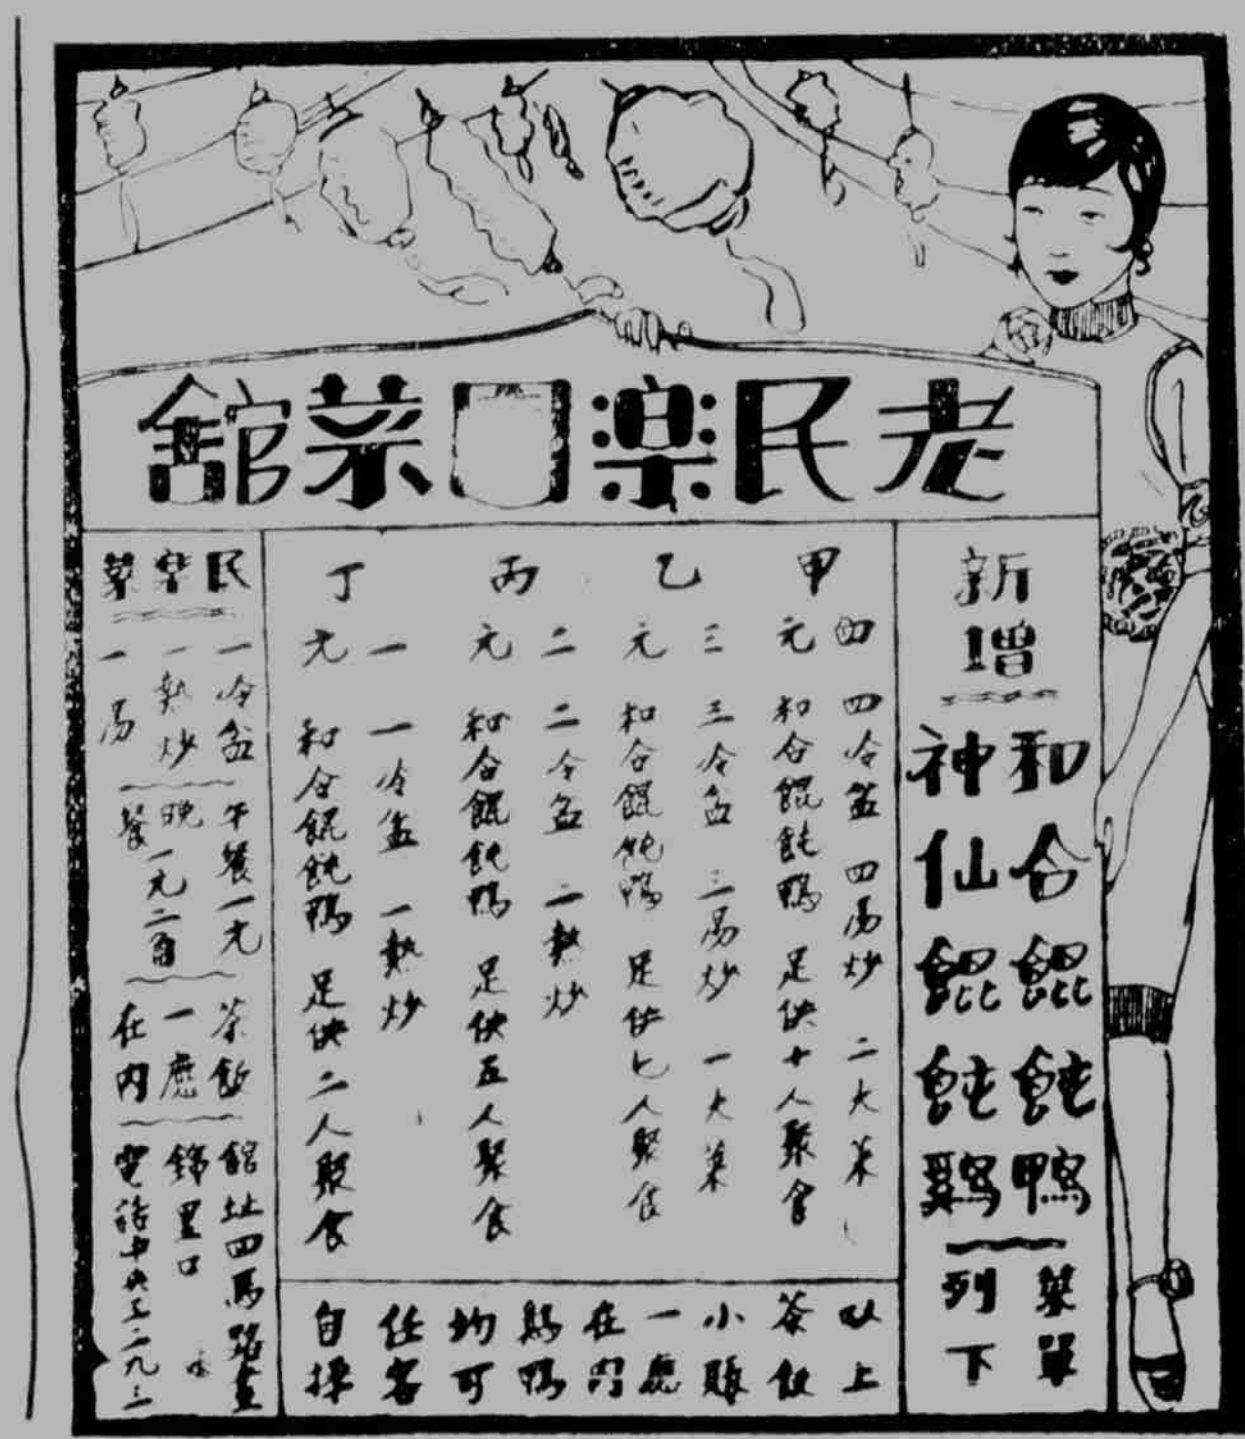 老民楽菜館
新增
和合餛飩鴨
神仙餛飩鷄
菜單
列下
甲
四元
四冷盆 四湯炒 二大菜
和合餛飩鴨 足供十人聚食
乙
三元
三冷盆 三湯炒 一大菜
和合餛飩鴨 足供七人聚食
丙
二元
二冷盆 二熱炒
和合餛飩鴨 足供五人聚食
丁
一元
一冷盆 一熱炒
和合餛飩鴨 足供二人聚食
以上
茶飯
小賬
一應
在內
鷄鴨
均可
任客
自擇
民樂菜
一冷盆
一熱炒
一湯
午餐一元
晚餐一元二角
茶飯
一應
在内
館址四馬路畫
錦里口
電話中央三二九三